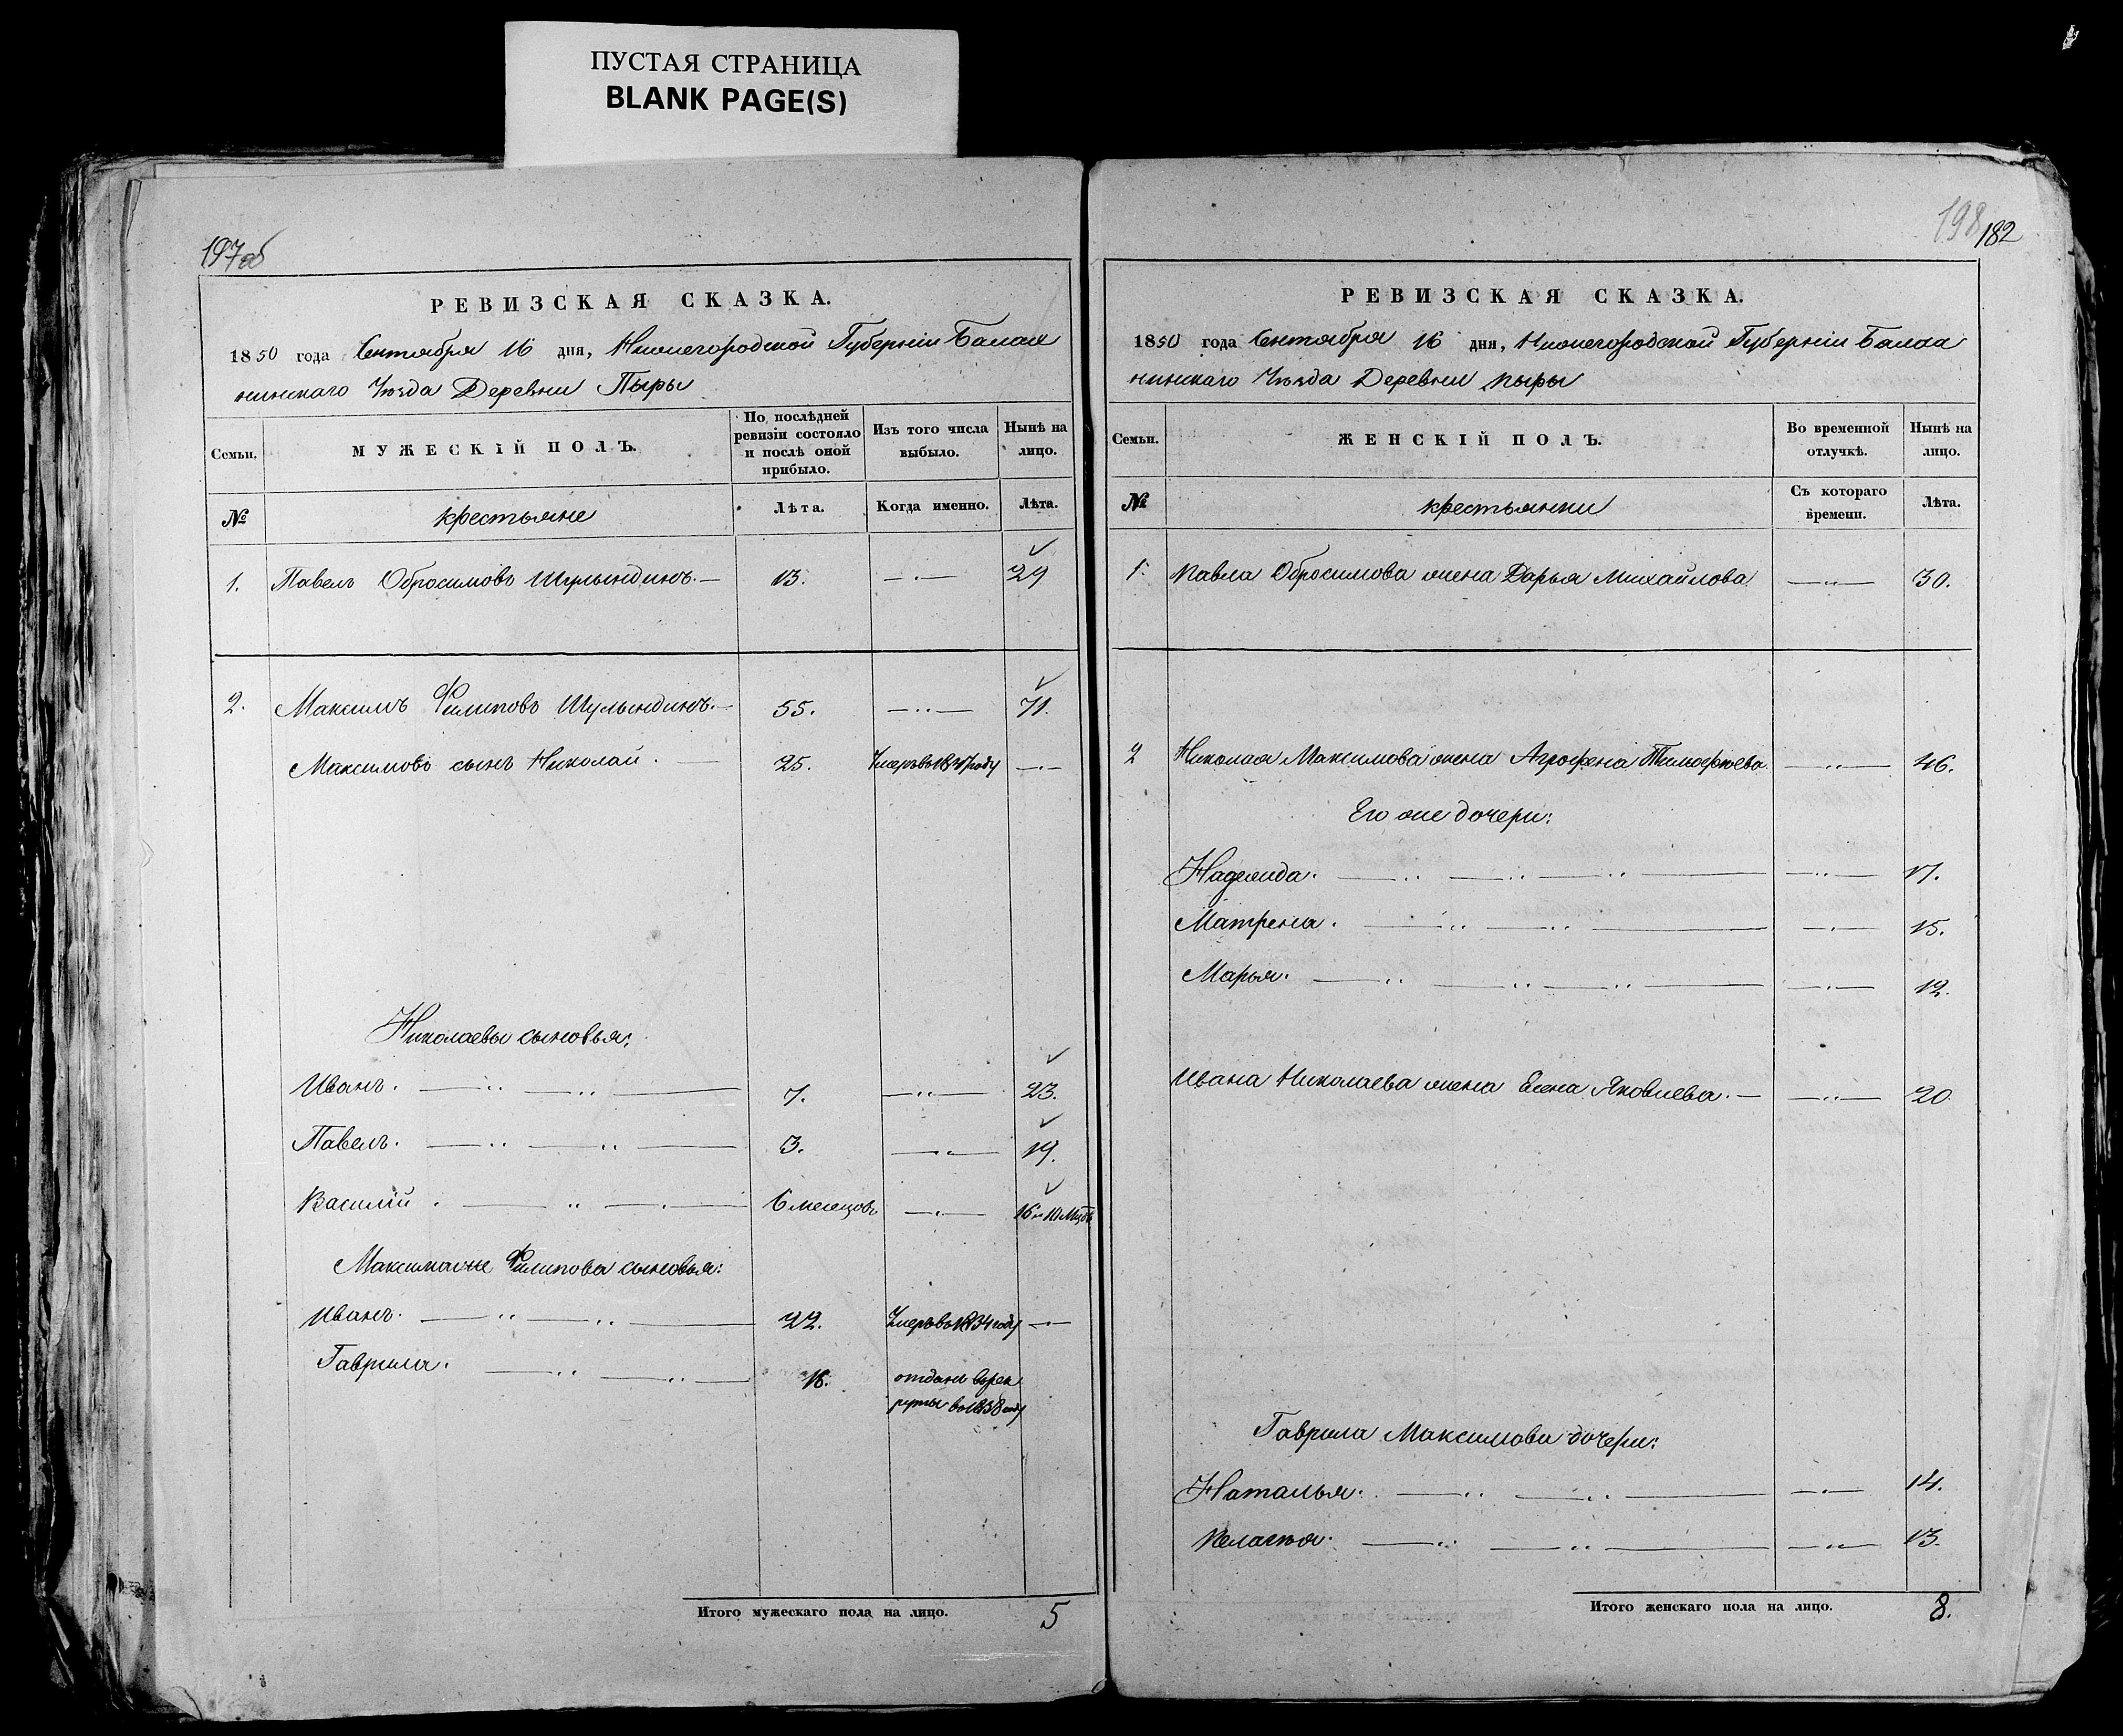 ПУСТАЯ СТРАНИЦА
BLANK PAGE(S)
197об
РЕВИЗСКАЯ СКАЗКА.
1850 года Сентября 16 дня, Нижегородской Губерніи Балах
нинскаго Уѣзда Деревни Пыры
Семьи. МУЖЕСКІЙ ПОЛЪ. По послѣдней ревизіи состояло и послѣ оной прибыло. Изъ того числа выбыло. Нынѣ на лицо.
№ крестьяне Лѣта. Когда именно. Лѣта.
1. Павелъ Обросимовъ Шульындинъ. 13. 29
2. Максимъ Филиповъ Шульындинъ. 55. 71.
Максимовъ сынъ Николай. 25. Умеръ въ году
Николаевы сыновья:
Иванъ. 7. 23.
Павелъ. 3. 19.
Василій. 6 месецовъ 16 и 10 Мцвъ
Максима же Филипова сыновья:
Иванъ. 22. Умеръ въ 1834 году
Гаврила. 18. отданъ врек
руты въ 1838 году
Итого мужескаго пола на лицо. 5
198 182
РЕВИЗСКАЯ СКАЗКА.
1850 года Сентября 16 дня, Нижегородской Губерніи Балах
нинскаго Уѣзда Деревни Пыры
Семьи. ЖЕНСКІЙ ПОЛЪ. Во временной отлучкѣ. Нынѣ на лицо.
№ крестьянки Съ котораго времени. Лѣта.
1. Павла Обросимова жена Дарья Михайлова 30.
2 Николая Максимова жена Агрофена Тимофѣева 46.
Его же дочери:
Надежда. 17.
Матрена. 15.
Марья. 12.
Ивана Николаева жена Елена Яковлева. 20
Гаврила Максимова дочери:
Наталья. 14.
Пелагѣя. 13.
Итого женскаго пола на лицо. 8.